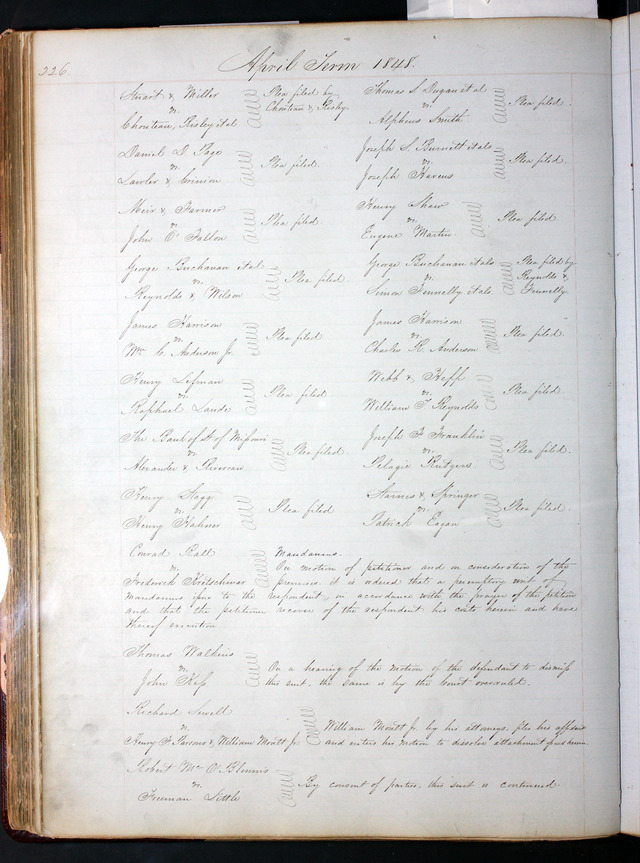 226
April Term 1848.
Stuart & Miller
vs.
Chouteau, Risley et al
Plea filed by
Chouteau & Risley
Thomas S. Dugan et al
vs.
Alpheus Smith
Plea filed.
Daniel D. Page
vs.
Lawler &
Plea filed.
Joseph S. Burnett et als
vs.
Joseph Havens
Plea filed.
Meir & Farmer
vs.
John O'Fallon
Plea filed.
Henry Shaw
vs.
Eugene Martin
Plea filed.
George Buchanan et al.
vs.
Reynolds & Wilson
Plea filed.
George Buchanan et als
vs.
Simon Funnelly et als.
Plea filed by
Reynolds &
Funnelly.
James Harrison
vs.
Wm C. Anderson Jr.
Plea filed
James Harrison
vs.
Charles R. Anderson
Plea filed.
Henry Lefman
vs.
Raphael Laude
Plea filed
Webb & Hepp
vs.
William T. Reynolds
Plea filed.
The Bank of St of Missouri
vs.
Alexander &
Plea filed.
Joseph H Franklin
vs.
Pelagie Rutgers
Plea filed.
Henry Sagg
vs.
Henry Hahner
Plea filed
Starnes & Springer
vs.
Patrick Eagan
Plea filed.
Conrad Rall
vs.
Frederick Kretschmar
Mandamus.
On motion of petitioner and in consideration of the
premises, it is ordered that a peremptory writ of
mandamus issue to the respondent, in accordance with the prayer of the petition
and that the petitioner recover of the respondent his costs herein and have
thereof execution
Thomas Watkins
vs.
John Kef
On a hearing of the motion of the defendant to dismiss
this suit, the same is by the Court overruled.
Richard Sewell
vs.
Henry H Parsons & William Montt Jr.
William Montt Jr. by his attorneys, files his affidavit
and enters his motion to dissolve attachment herein.
Robert Mc O'Blennis
vs.
Freeman Little
By consent of parties, this suit is continued.